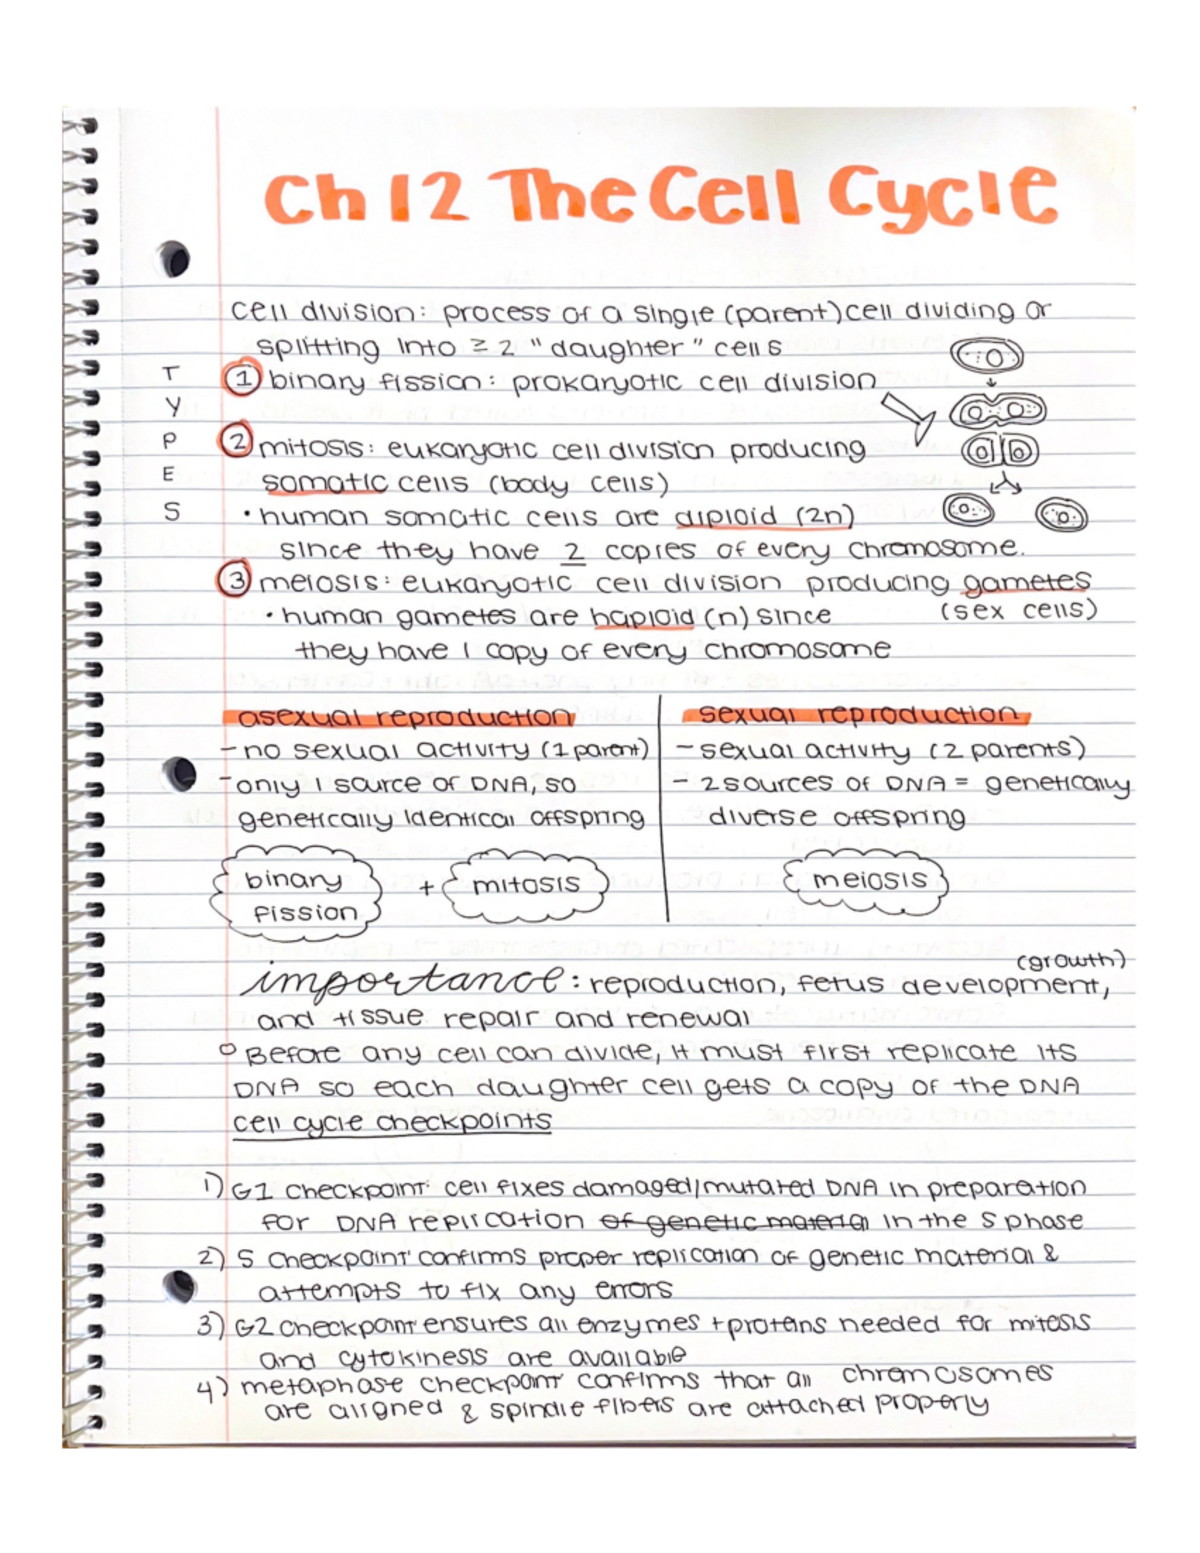 Ch 12 The Cell Cycle
cell division: process of a single (parent) cell dividing or
splitting into ≥ 2 "daughter" cells
TYPES
1 binary fission: prokaryotic cell division
2 mitosis: eukaryotic cell division producing
somatic cells (body cells)
• human somatic cells are diploid (2n)
since they have 2 copies of every chromosome.
3 meiosis: eukaryotic cell division producing gametes
(sex cells)
• human gametes are haploid (n) since
they have 1 copy of every chromosome
asexual reproduction
- no sexual activity (1 parent)
- only 1 source of DNA, so
genetically identical offspring
binary
fission
+ mitosis
sexual reproduction
- sexual activity (2 parents)
- 2 sources of DNA = genetically
diverse offspring
meiosis
(growth)
importance: reproduction, fetus development,
and tissue repair and renewal
○ Before any cell can divide, it must first replicate its
DNA so each daughter cell gets a copy of the DNA
cell cycle checkpoints
1) G1 checkpoint: cell fixes damaged/mutated DNA in preparation
for DNA replication of genetic material in the S phase
2) S checkpoint: confirms proper replication of genetic material &
attempts to fix any errors
3) G2 checkpoint: ensures all enzymes + proteins needed for mitosis
and cytokinesis are available
4) metaphase checkpoint confirms that all chromosomes
are aligned & spindle fibers are attached properly